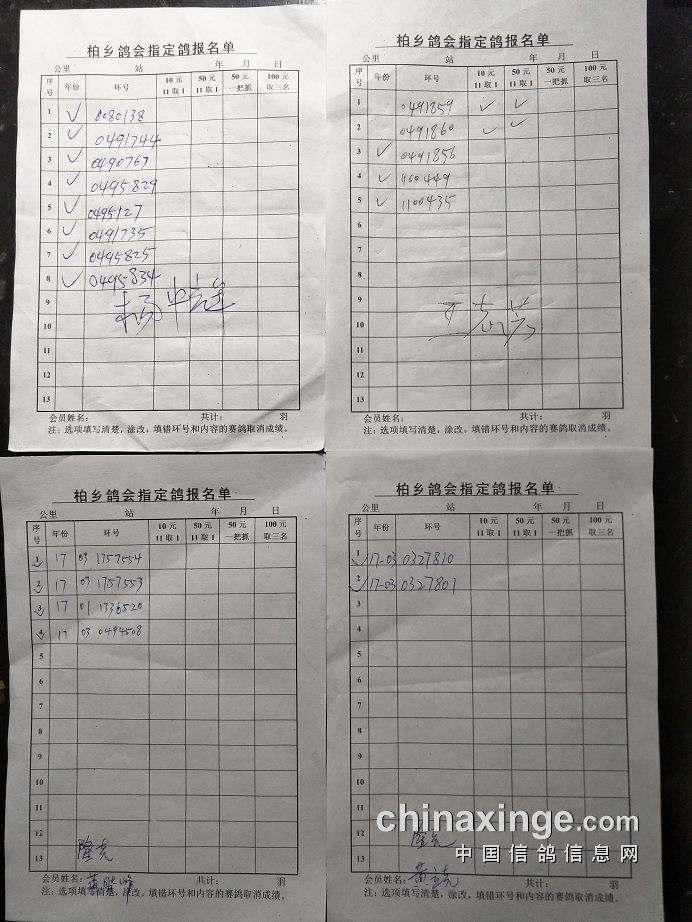 柏乡鸽会指定鸽报名单
公里 站 年 月 日
序号 年份 环号 10元11取1 50元11取1 50元一把抓 100元取三名
1 ✓ 0080138
2 ✓ 0491744
3 ✓ 0490767
4 ✓ 0495829
5 ✓ 0495127
6 ✓ 0491735
7 ✓ 0495825
8 ✓ 0495834
9
10
11
12
13
会员姓名： 共计： 羽
注：选项填写清楚，涂改，填错环号和内容的赛鸽取消成绩。
柏乡鸽会指定鸽报名单
公里 站 年 月 日
序号 年份 环号 10元11取1 50元11取1 50元一把抓 100元取三名
1 0491859 ✓ ✓
2 0491860 ✓ ✓
3 ✓ 0491856
4 ✓ 1100449
5 ✓ 1100435
6
7
8
9
10
11
12
13
会员姓名： 共计： 羽
注：选项填写清楚，涂改，填错环号和内容的赛鸽取消成绩。
柏乡鸽会指定鸽报名单
公里 站 年 月 日
序号 年份 环号 10元11取1 50元11取1 50元一把抓 100元取三名
1 17 03 1757554
2 17 03 1757553
3 17 01 1336520
4 17 03 0494508
5
6
7
8
9
10
11
12
13 隆尧
会员姓名： 共计： 羽
注：选项填写清楚，涂改，填错环号和内容的赛鸽取消成绩。
柏乡鸽会指定鸽报名单
公里 站 年 月 日
序号 年份 环号 10元11取1 50元11取1 50元一把抓 100元取三名
1 17-03 0327810
2 17-03 0327801
3
4
5
6
7
8
9
10
11
12 隆尧
13
会员姓名： 共计： 羽
注：选项填写清楚，涂改，填错环号和内容的赛鸽取消成绩。
chinaxinge.com
中国信鸽信息网